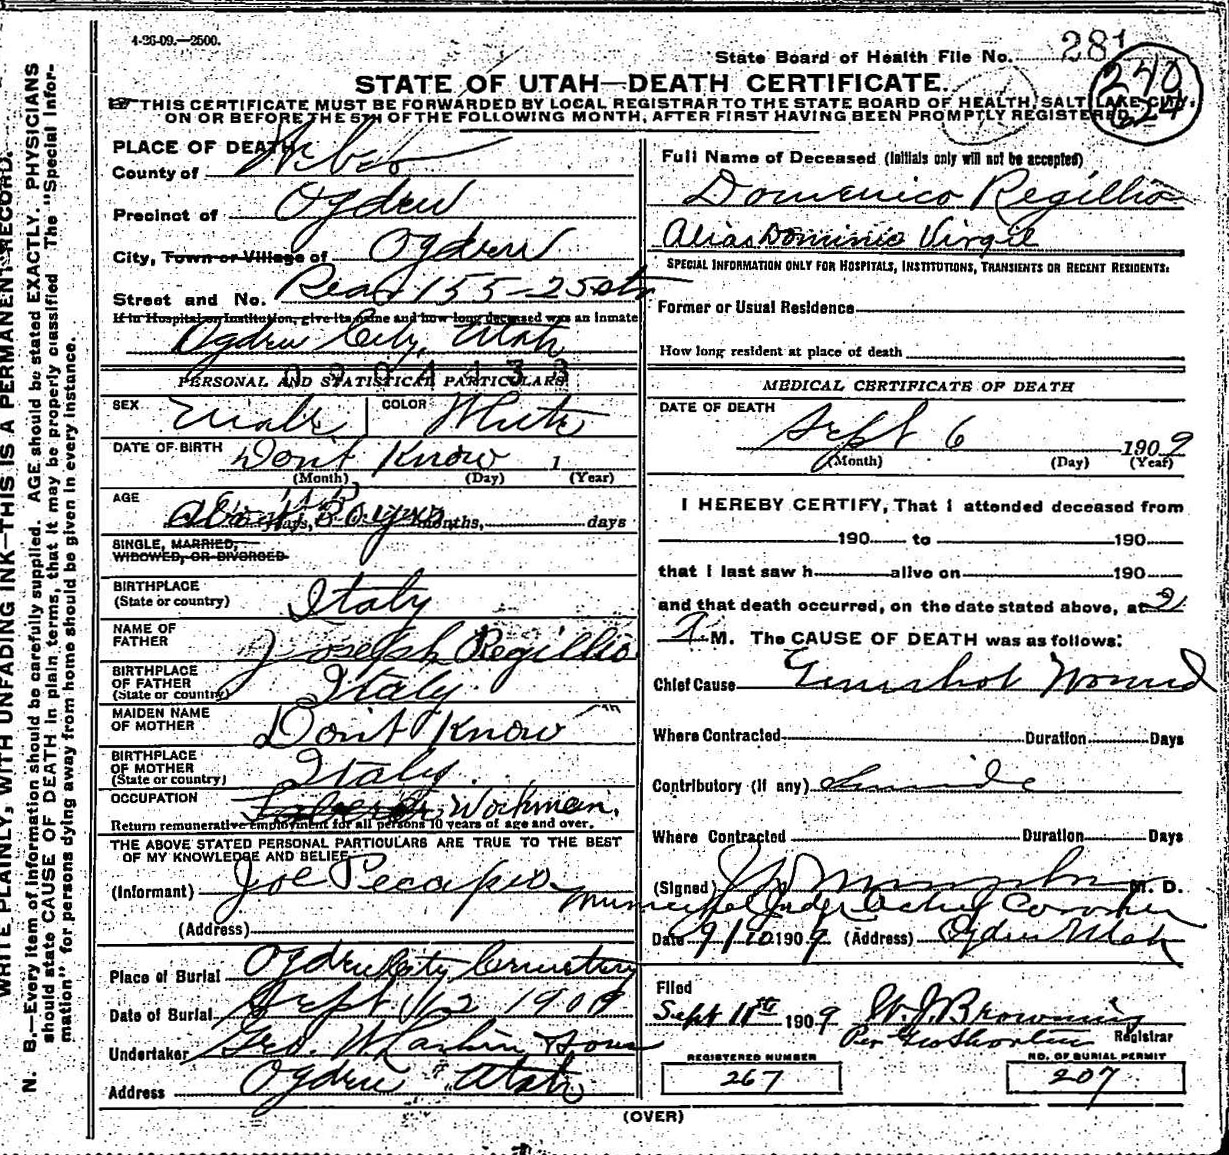 4-26-09.—2500.
State Board of Health File No. 281
240
624
STATE OF UTAH—DEATH CERTIFICATE.
THIS CERTIFICATE MUST BE FORWARDED BY LOCAL REGISTRAR TO THE STATE BOARD OF HEALTH, SALT LAKE CITY,
ON OR BEFORE THE 5TH OF THE FOLLOWING MONTH, AFTER FIRST HAVING BEEN PROMPTLY REGISTERED.
WRITE PLAINLY, WITH UNFADING INK—THIS IS A PERMANENT RECORD.
N. B.—Every item of information should be carefully supplied. AGE should be stated EXACTLY. PHYSICIANS
should state CAUSE OF DEATH in plain terms, that it may be properly classified. The "Special Infor-
mation" for persons dying away from home should be given in every instance.
PLACE OF DEATH
County of Weber
Precinct of Ogden
City, Town or Village of Ogden
Street and No. Rear 155-25 str
If in Hospital or Institution, give its name and how long deceased was an inmate
Ogden City, Utah
0904433
PERSONAL AND STATISTICAL PARTICULARS
SEX Male COLOR White
DATE OF BIRTH Dont Know 1
(Month) (Day) (Year)
AGE About years, months, days
SINGLE, MARRIED,
WIDOWED, OR DIVORCED
BIRTHPLACE
(State or country) Italy
NAME OF
FATHER Joseph Regillio
BIRTHPLACE
OF FATHER
(State or country) Italy
MAIDEN NAME
OF MOTHER Dont Know
BIRTHPLACE
OF MOTHER
(State or country) Italy
OCCUPATION Laborer Workman.
Return remunerative employment for all persons 10 years of age and over.
THE ABOVE STATED PERSONAL PARTICULARS ARE TRUE TO THE BEST
OF MY KNOWLEDGE AND BELIEF
(Informant) Joe
(Address)
Place of Burial Ogden City Cemetery
Date of Burial Sept 12 1909
Undertaker Geo. W Larkin & Sons
Address Ogden Utah
Full Name of Deceased (Initials only will not be accepted)
Domenico Regillio
Alias Dominic Virgil
SPECIAL INFORMATION ONLY FOR HOSPITALS, INSTITUTIONS, TRANSIENTS OR RECENT RESIDENTS:
Former or Usual Residence
How long resident at place of death
MEDICAL CERTIFICATE OF DEATH
DATE OF DEATH
Sept 6 1909
(Month) (Day) (Year)
I HEREBY CERTIFY, That I attended deceased from
190 to 190
that I last saw h alive on 190
and that death occurred, on the date stated above, at
M. The CAUSE OF DEATH was as follows:
Chief Cause Gunshot Wound
Where Contracted Duration Days
Contributory (if any)
Where Contracted Duration Days
(Signed) J D Murphy M. D.
Municipal Judge Acting Coroner
Date 9/10 1909 (Address) Ogden Utah
Filed
Sept 11st 1909 W. J. Browning
Per Geo Shorten Registrar
REGISTERED NUMBER
267
NO. OF BURIAL PERMIT
207
(OVER)